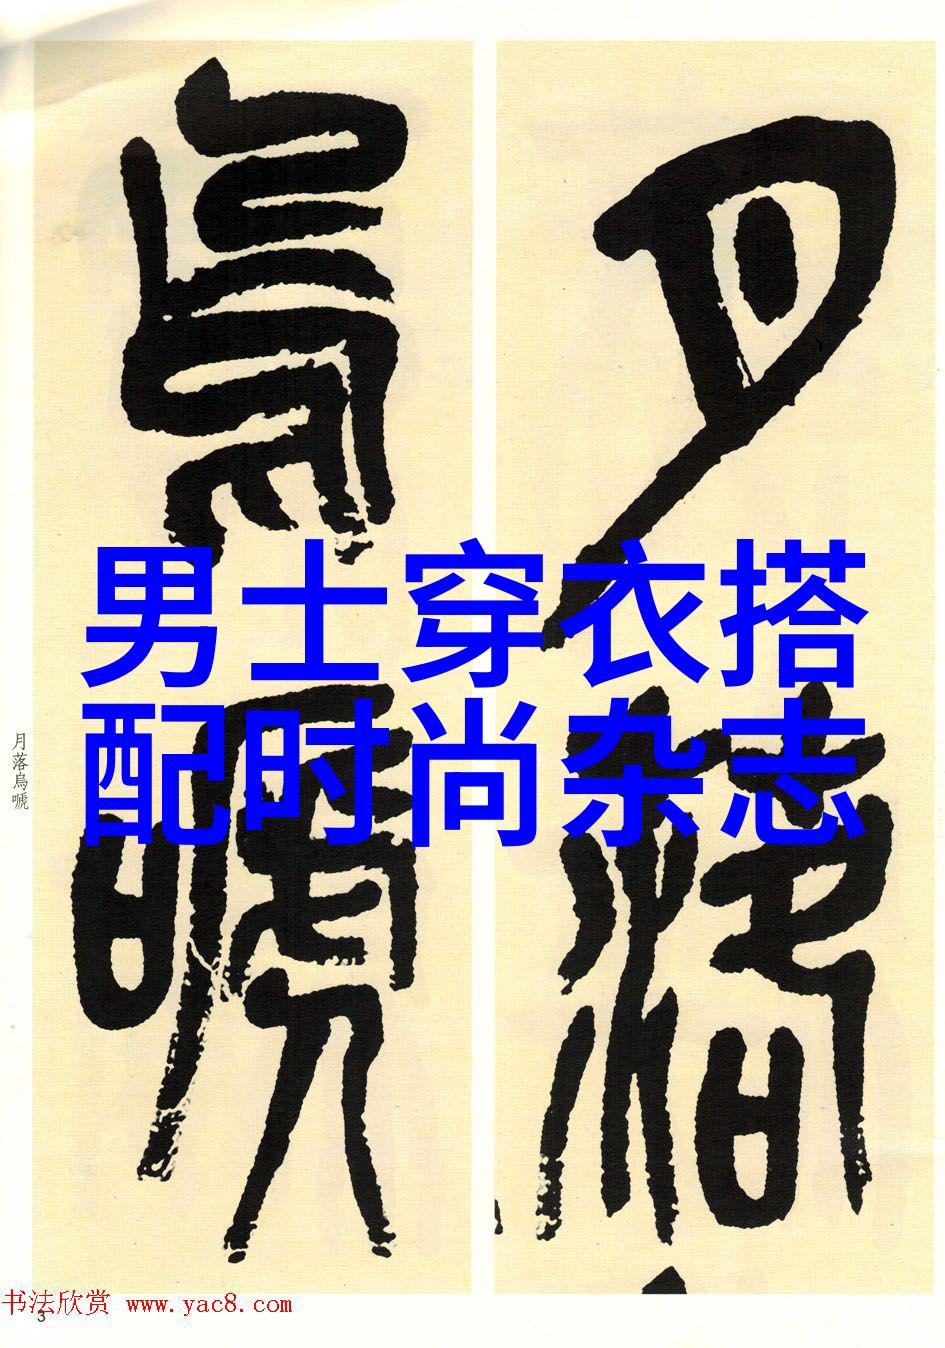 月落
烏嗁
男士穿衣搭
配时尚杂志
月落烏嗁
书法欣赏 www.yac8.com
3